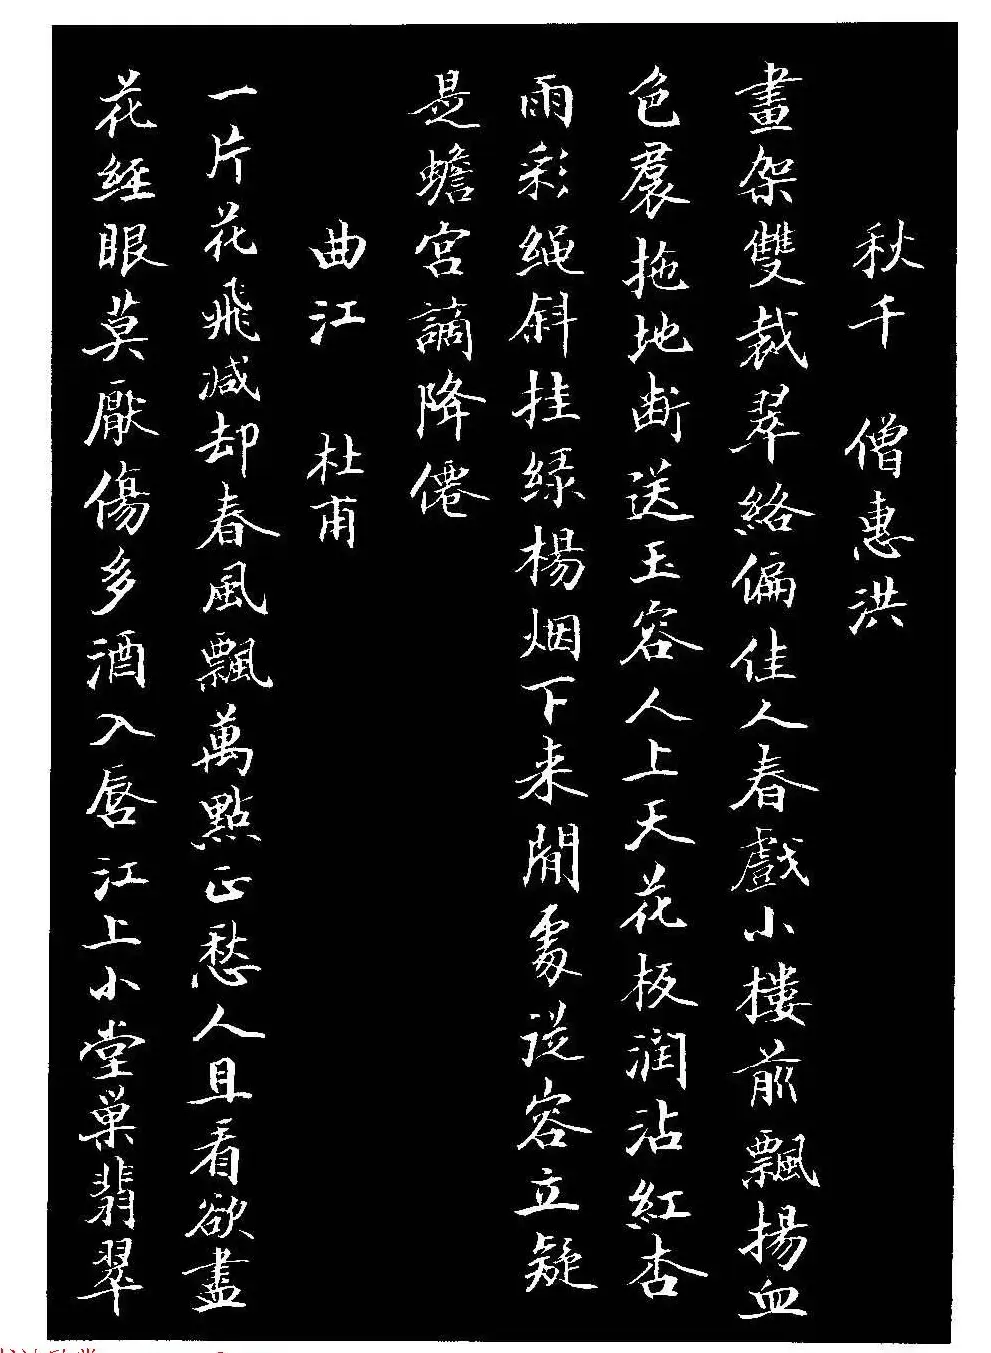 秋千　僧惠洪
畫架雙裁翠絡偏佳人春戲小樓前飄揚血
色裠拖地断送玉容人上天花板润沾紅杏
雨彩绳斜挂绿楊烟下来閒處從容立疑
是蟾宮謫降僊
曲江　杜甫
一片花飛减却春風飄萬點正愁人且看欲盡
花經眼莫厭傷多酒入唇江上小堂巢翡翠